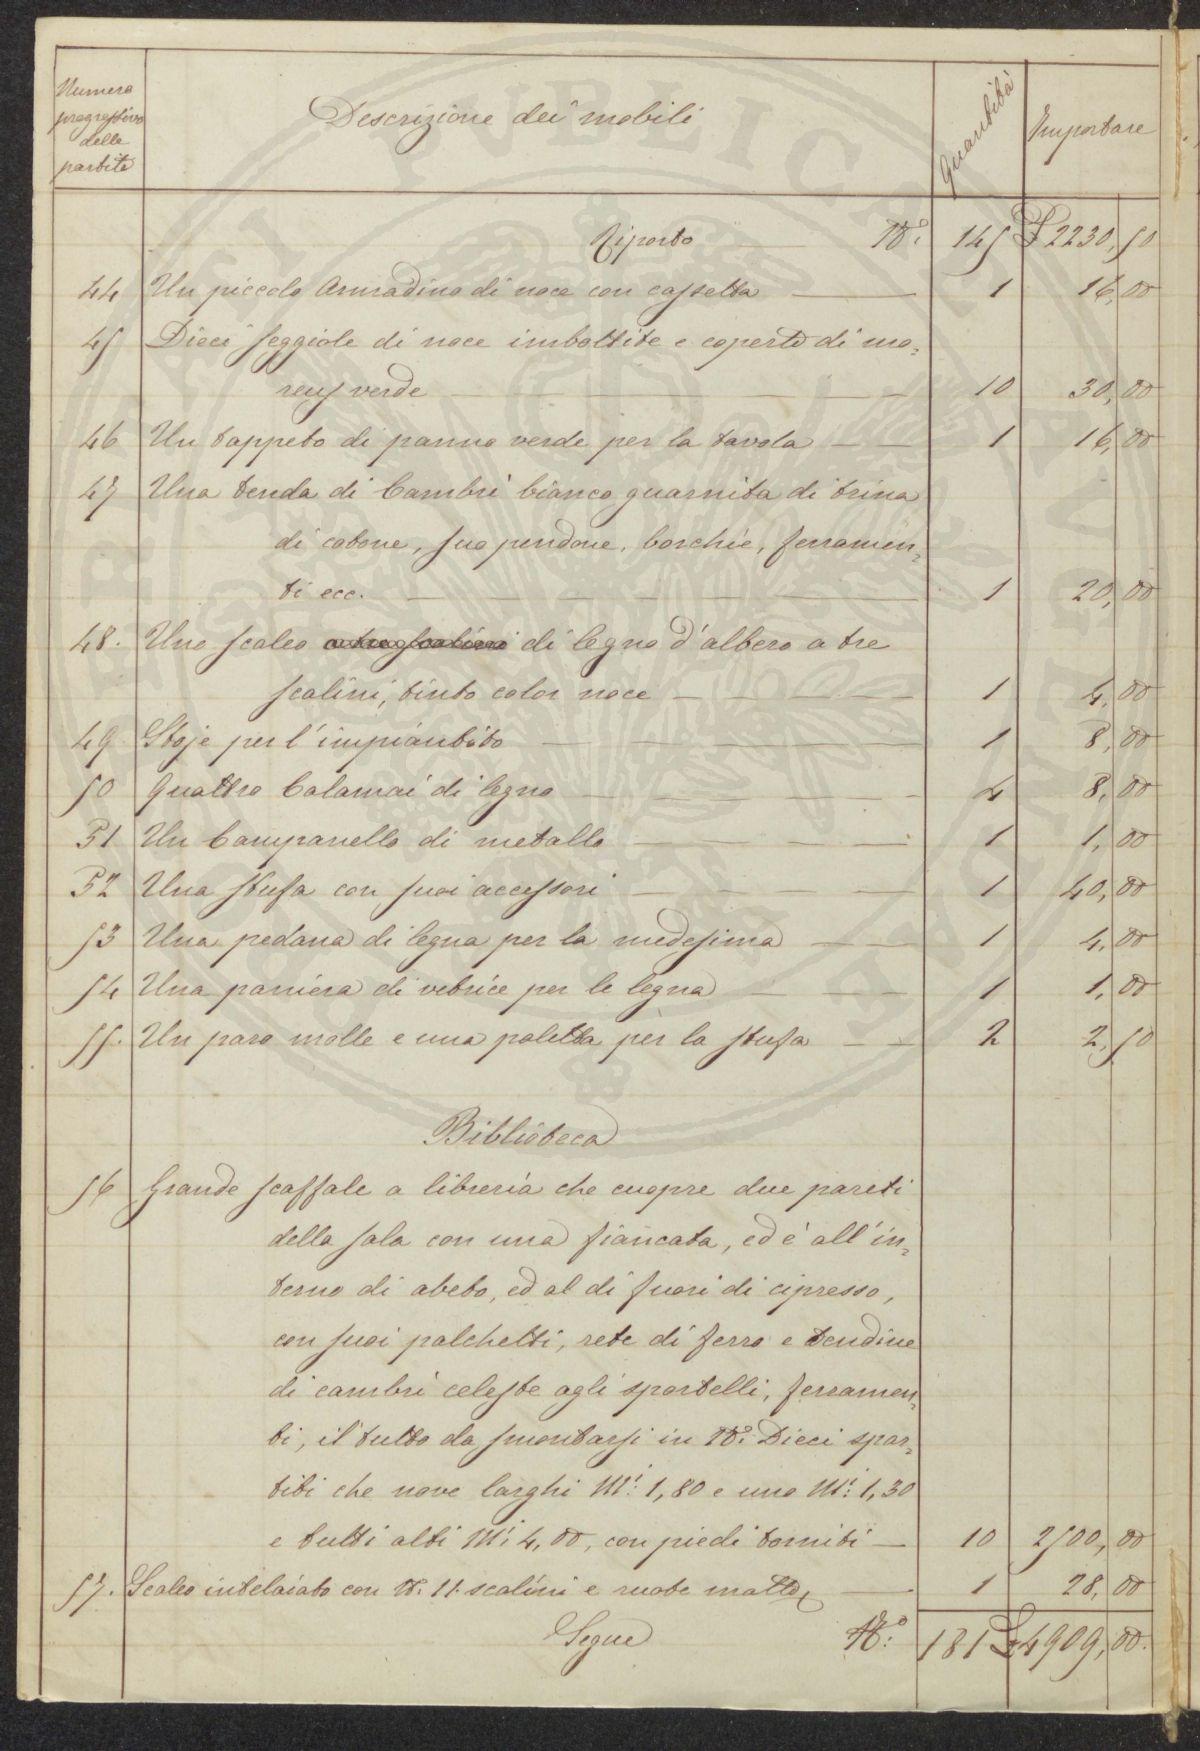 Numero
progressivo
delle
partite
Descrizione dei mobili
Quantità
Importare
Riporto N.° 145 £ 2230,50
44 Un piccolo Armadino di noce con cassetta 1 16,00
45 Dieci seggiole di noce imbottite e coperte di mo=
rens verde 10 30,00
46 Un tappeto di panno verde per la tavola 1 16,00
47 Una tenda di Cambrì bianco guarnita di trina
di cotone, suo pendone, borchie, ferramen=
ti ecc. 1 20,00
48. Uno scaleo a tre scalini di legno d'albero a tre
scalini, tinto color noce 1 4,00
49 Stoje per l'impiantito 1 8,00
50 Quattro Calamai di legno 4 8,00
51 Un Campanello di metallo 1 1,00
52 Una stufa con suoi accessori 1 40,00
53 Una pedana di legna per la medesima 1 4,00
54 Una paniera di vetrice per le legna 1 1,00
55. Un paro molle e una paletta per la stufa 2 2,50
Biblioteca
56 Grande scaffale a libreria che cuopre due pareti
della sala con una fiancata, ed è all'in=
terno di abeto, ed al di fuori di cipresso,
con suoi palchetti, rete di ferro e tendine
di cambrì celeste agli sportelli, ferramen=
ti, il tutto da smontarsi in N.° Dieci spar=
titi che nove larghi M.i 1,80 e uno M.i 1,30
e tutti alti M.i 4,00, con piedi torniti 10 2500,00
57. Scaleo intelaiato con N. 11. scalini e ruote matte 1 28,00
Segue N.° 181 £ 4909,00.